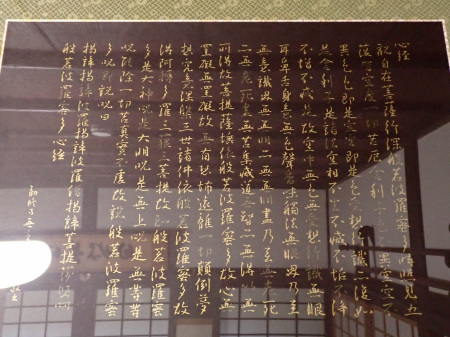 心経
観自在菩薩行深般若波羅蜜多時照見五
蘊皆空度一切苦厄舎利子色不異空空不
異色色即是空空即是色受想行識亦復如
是舎利子是諸法空相不生不滅不垢不浄
不増不減是故空中無色無受想行識無眼
耳鼻舌身意無色声香味触法無眼界乃至
無意識界無無明亦無無明尽乃至無老死
亦無老死尽無苦集滅道無智亦無得以無
所得故菩提薩埵依般若波羅蜜多故心無
罣礙無罣礙故無有恐怖遠離一切顛倒夢
想究竟涅槃三世諸仏依般若波羅蜜多故
得阿耨多羅三藐三菩提故知般若波羅蜜
多是大神呪是大明呪是無上呪是無等等
呪能除一切苦真実不虚故説般若波羅蜜
多呪即説呪曰
羯諦羯諦波羅羯諦波羅僧羯諦菩提薩婆訶
般若波羅蜜多心経